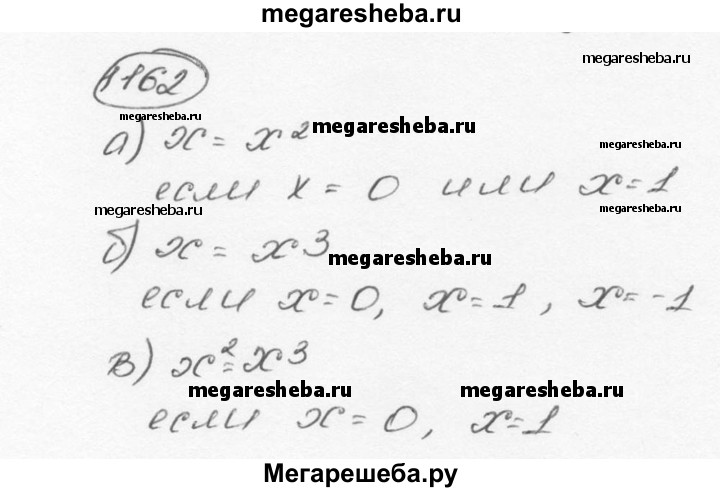 megaresheba.ru
megaresheba.ru
1162
megaresheba.ru
а) x = x² megaresheba.ru megaresheba.ru
если x = 0 или x = 1
megaresheba.ru megaresheba.ru
б) x = x³ megaresheba.ru megaresheba.ru
если x = 0, x = 1, x = -1
в) x² = x³
megaresheba.ru megaresheba.ru
если x = 0, x = 1
Мегарешеба.ру